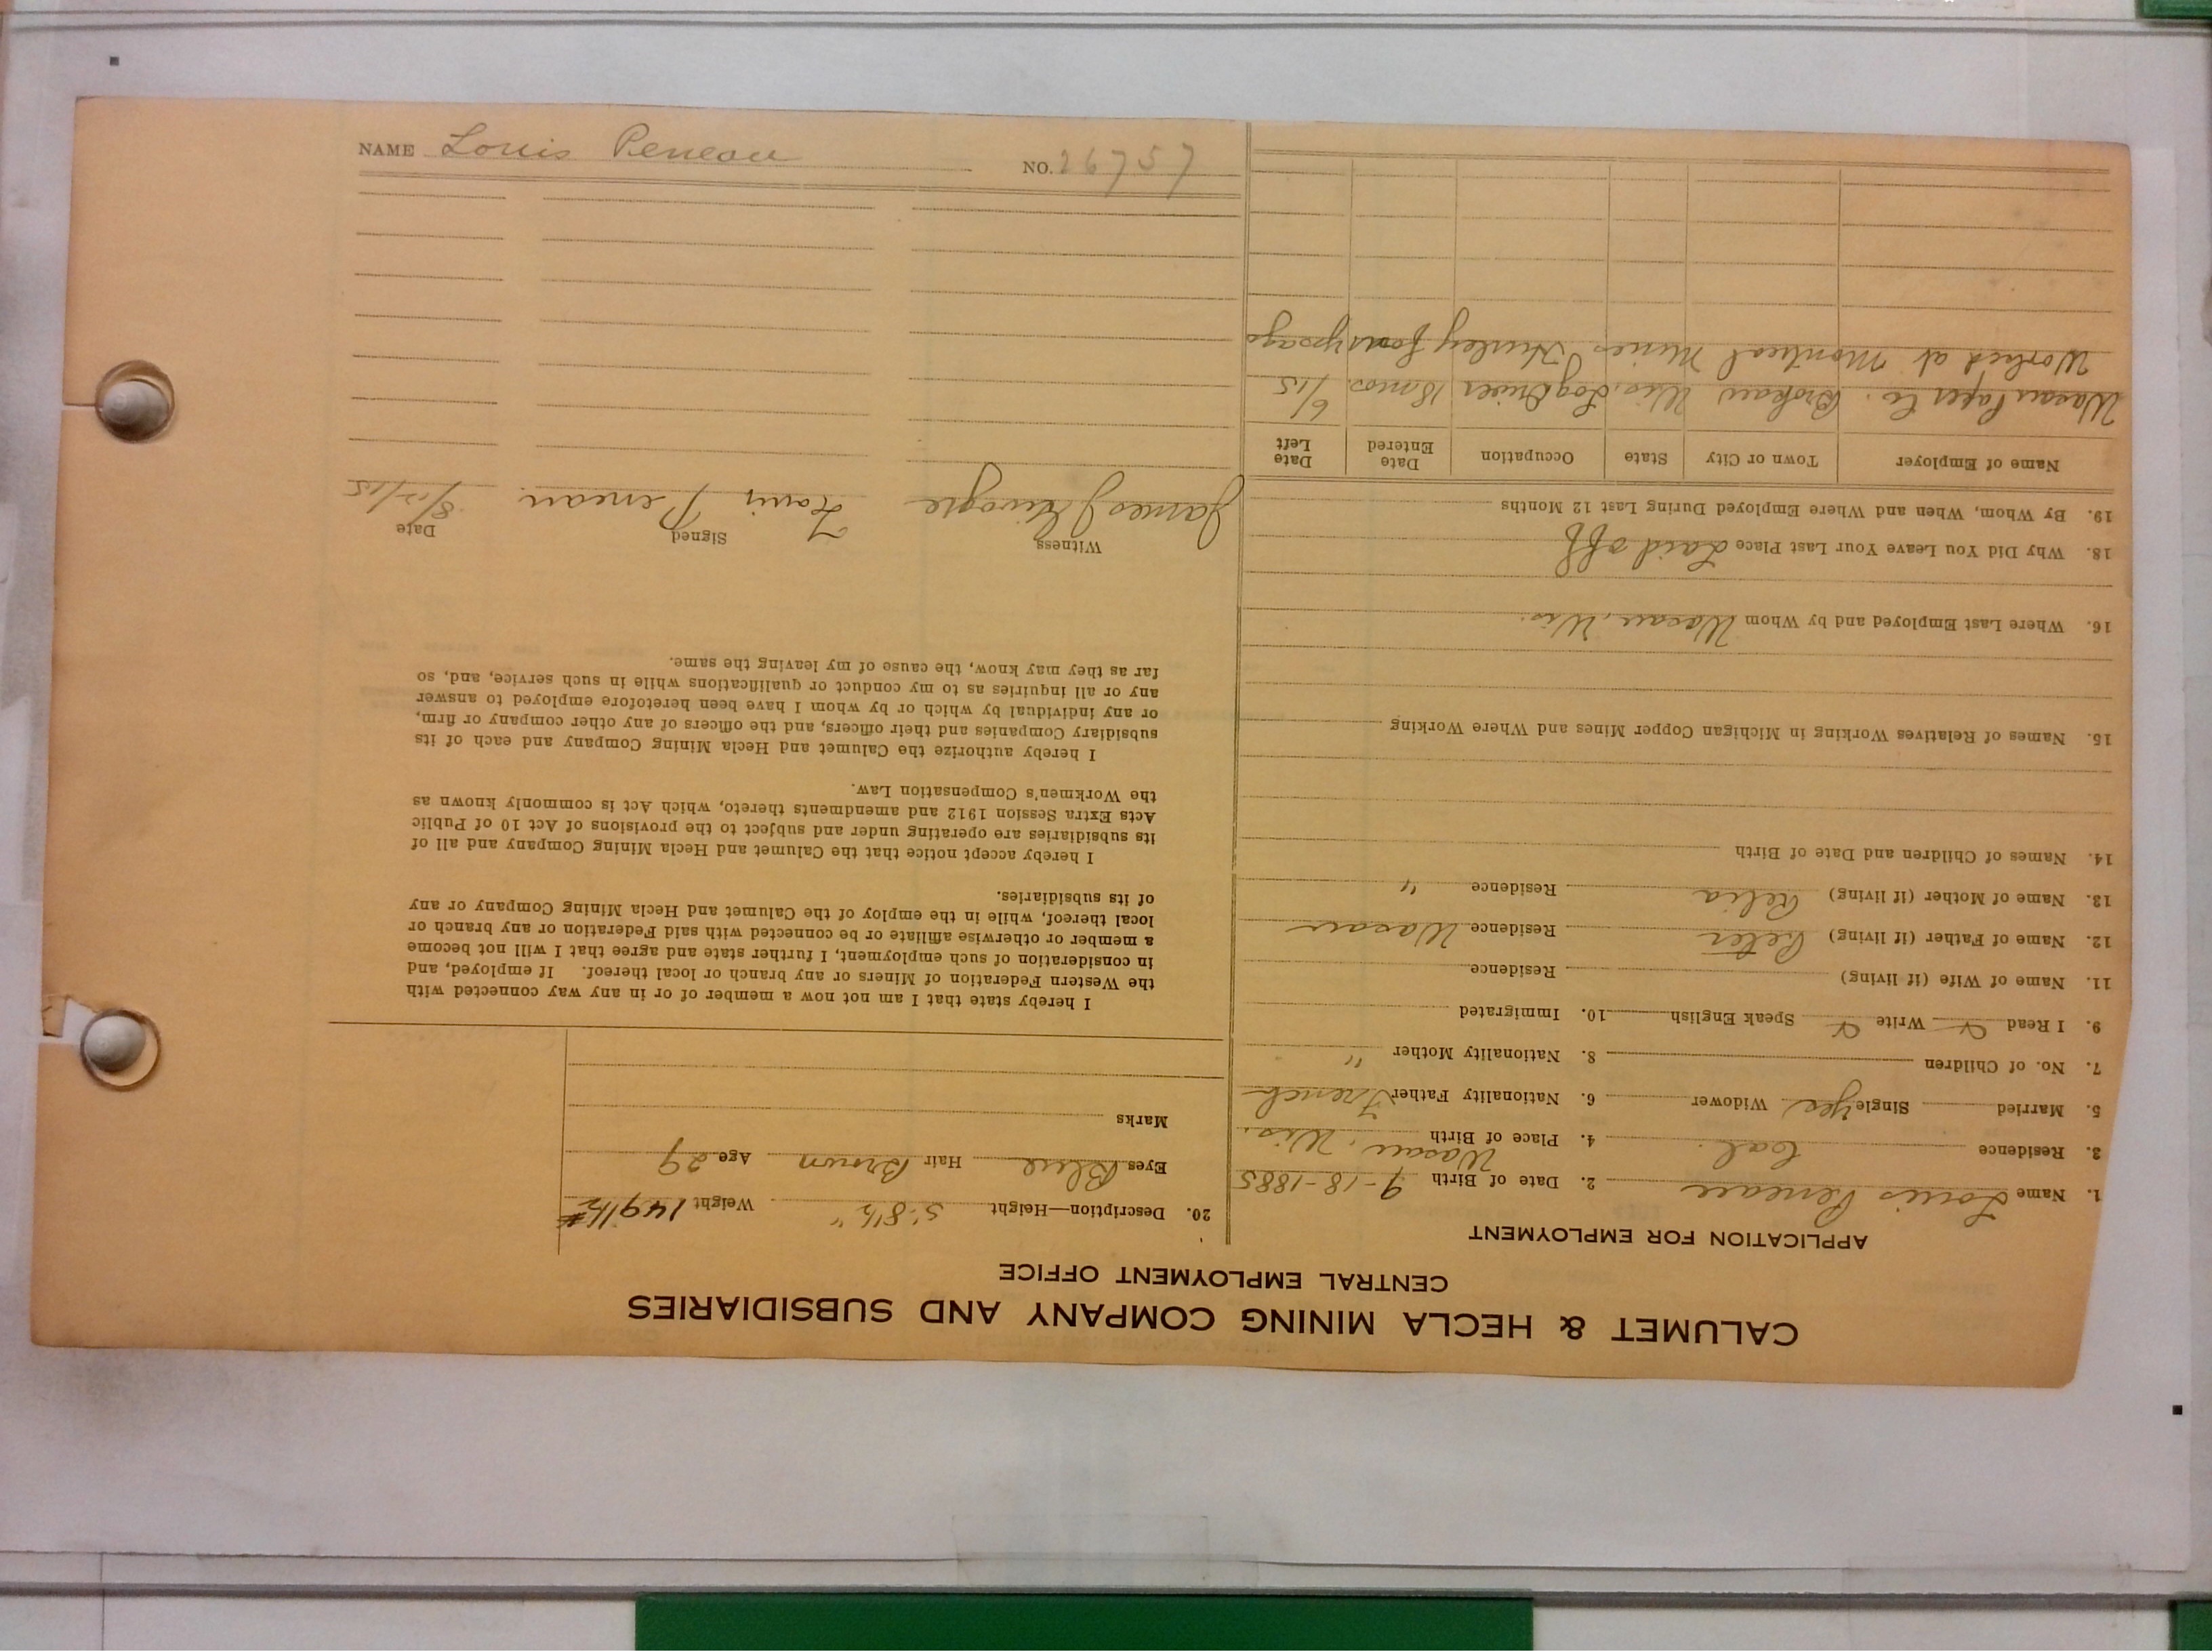 CALUMET & HECLA MINING COMPANY AND SUBSIDIARIES
CENTRAL EMPLOYMENT OFFICE
APPLICATION FOR EMPLOYMENT
1. Name Louis Peneau 2. Date of Birth 9-18-1885
3. Residence Cal. 4. Place of Birth Wasau, Wis.
5. Married Single Yes Widower 6. Nationality Father French
7. No. of Children 8. Nationality Mother "
9. I Read Write Speak English 10. Immigrated
11. Name of Wife (if living) Residence
12. Name of Father (if living) Peter Residence Wasau
13. Name of Mother (if living) Residence "
14. Names of Children and Date of Birth
15. Names of Relatives Working in Michigan Copper Mines and Where Working
16. Where Last Employed and by Whom Wasau, Wis.
18. Why Did You Leave Your Last Place Laid off
19. By Whom, When and Where Employed During Last 12 Months
Name of Employer Town or City State Occupation Date Entered Date Left
Wasau Paper Co. Brokaw Wis. Log Driver 18 mos. 6/15
Worked at Montreal Mines Hurley four yrs ago
20. Description—Height 5' 8 1/2" Weight 149 1/2 #
Eyes Blue Hair Brown Age 29
Marks
I hereby state that I am not now a member of or in any way connected with
the Western Federation of Miners or any branch or local thereof. If employed, and
in consideration of such employment, I further state and agree that I will not become
a member or otherwise affiliate or be connected with said Federation or any branch or
local thereof, while in the employ of the Calumet and Hecla Mining Company or any
of its subsidiaries.
I hereby accept notice that the Calumet and Hecla Mining Company and all of
its subsidiaries are operating under and subject to the provisions of Act 10 of Public
Acts Extra Session 1912 and amendments thereto, which Act is commonly known as
the Workmen's Compensation Law.
I hereby authorize the Calumet and Hecla Mining Company and each of its
subsidiary Companies and their officers, and the officers of any other company or firm,
or any individual by which or by whom I have been heretofore employed to answer
any or all inquiries as to my conduct or qualifications while in such service, and, so
far as they may know, the cause of my leaving the same.
Witness Signed Date
James J Louis Peneau. 8/12/15
NAME Louis Peneau NO. 26757